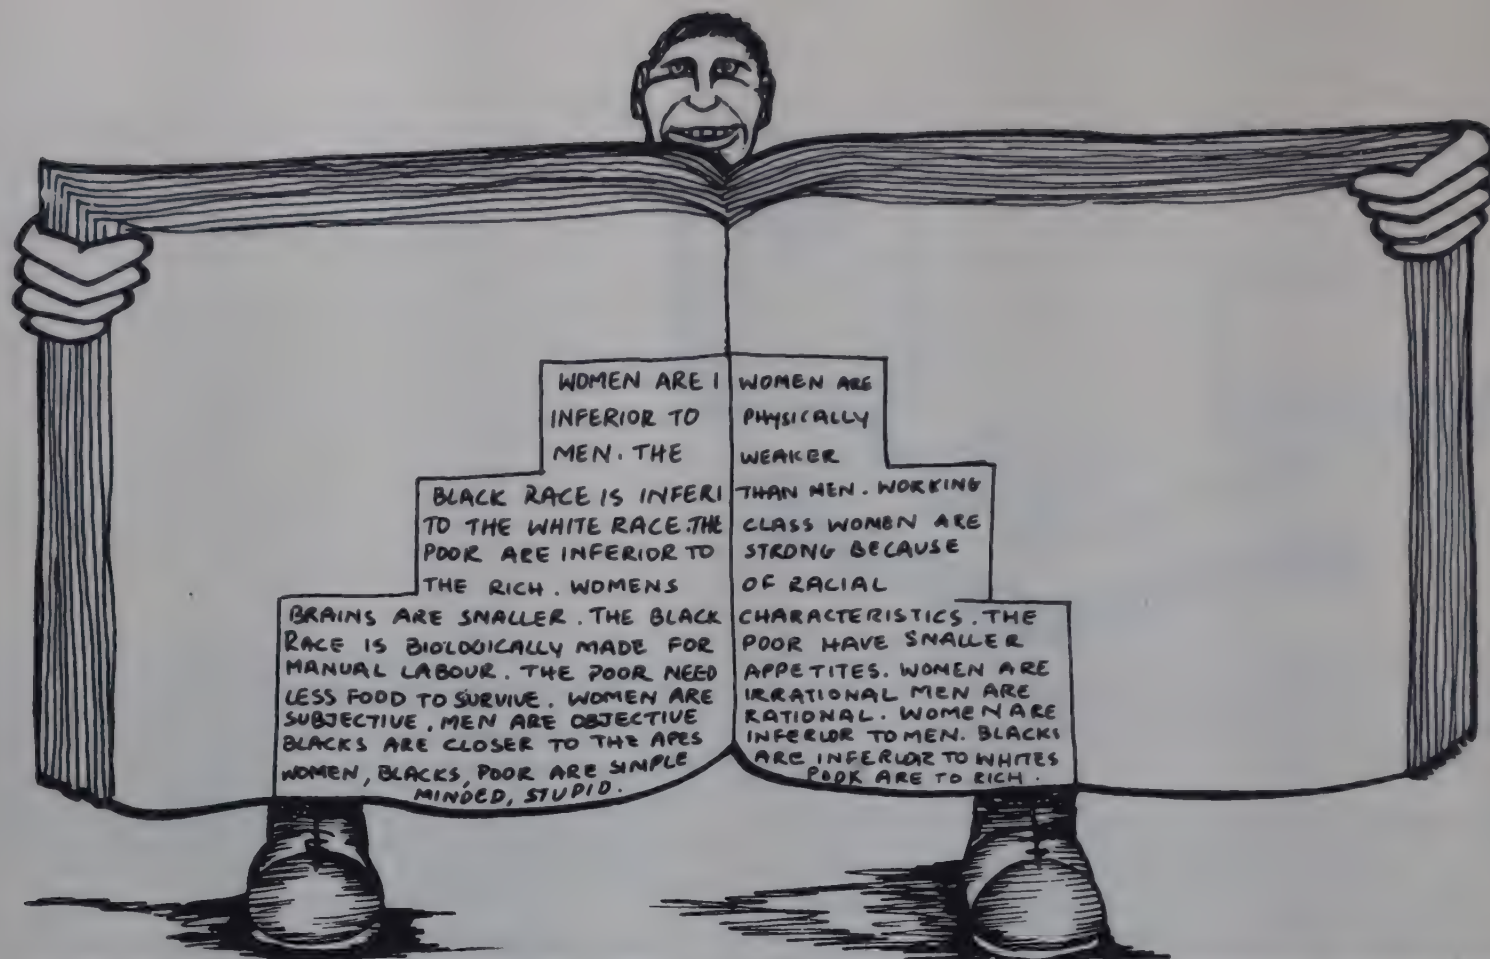 WOMEN ARE I
INFERIOR TO
MEN. THE
BLACK RACE IS INFERI
TO THE WHITE RACE. THE
POOR ARE INFERIOR TO
THE RICH. WOMENS
BRAINS ARE SNALLER. THE BLACK
RACE IS BIOLOGICALLY MADE FOR
MANUAL LABOUR. THE POOR NEED
LESS FOOD TO SURVIVE. WOMEN ARE
SUBJECTIVE. MEN ARE OBJECTIVE
BLACKS ARE CLOSER TO THE APES
WOMEN, BLACKS, POOR ARE SIMPLE
MINDED, STUPID.
WOMEN ARE
PHYSICALLY
WEAKER
THAN MEN. WORKING
CLASS WOMEN ARE
STRONG BECAUSE
OF RACIAL
CHARACTERISTICS. THE
POOR HAVE SNALLER
APPETITES. WOMEN ARE
IRRATIONAL MEN ARE
RATIONAL. WOMEN ARE
INFERIOR TO MEN. BLACKS
ARE INFERIOR TO WHITES
POOR ARE TO RICH.